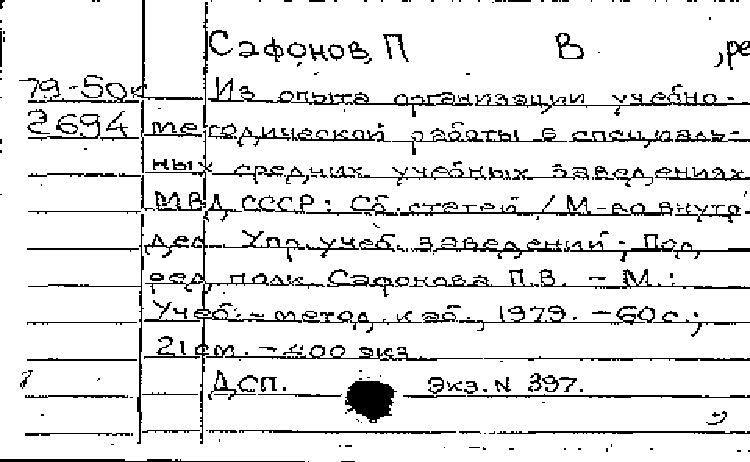 Сафонов, П В , ре
79-50к Из опыта организации учебно-
2694 методической работы в специаль-
ных средних учебных заведениях
МВД СССР: Сб. статей / М-во внутр.
дел. Упр. учеб. заведений; Под
ред. полк. Сафонова П.В. - М.:
Учеб.-метод. каб., 1979. - 60 с.;
21 см. - 400 экз.
ДСП. Экз. N 397.